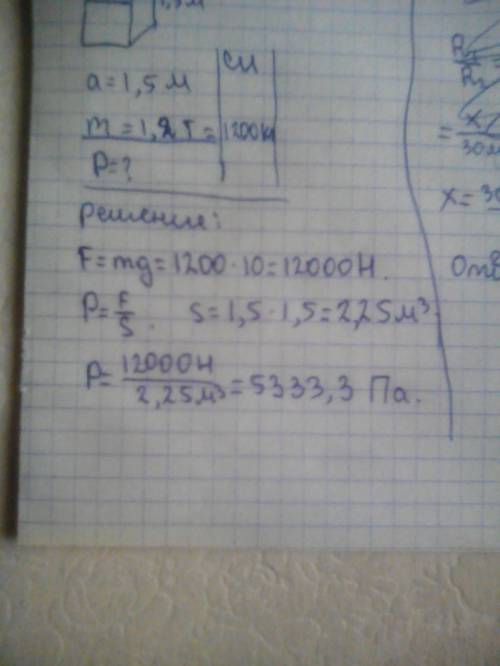 1,5м
СИ
a = 1,5 м
m = 1,2 т = 1200 кг
P = ?
Решение:
F = mg = 1200 · 10 = 12000 Н.
P = F/S. S = 1,5 · 1,5 = 2,25 м³
P = 12000 Н / 2,25 м³ = 5333,3 Па.
R₂
= x
30
x = 30
Отв